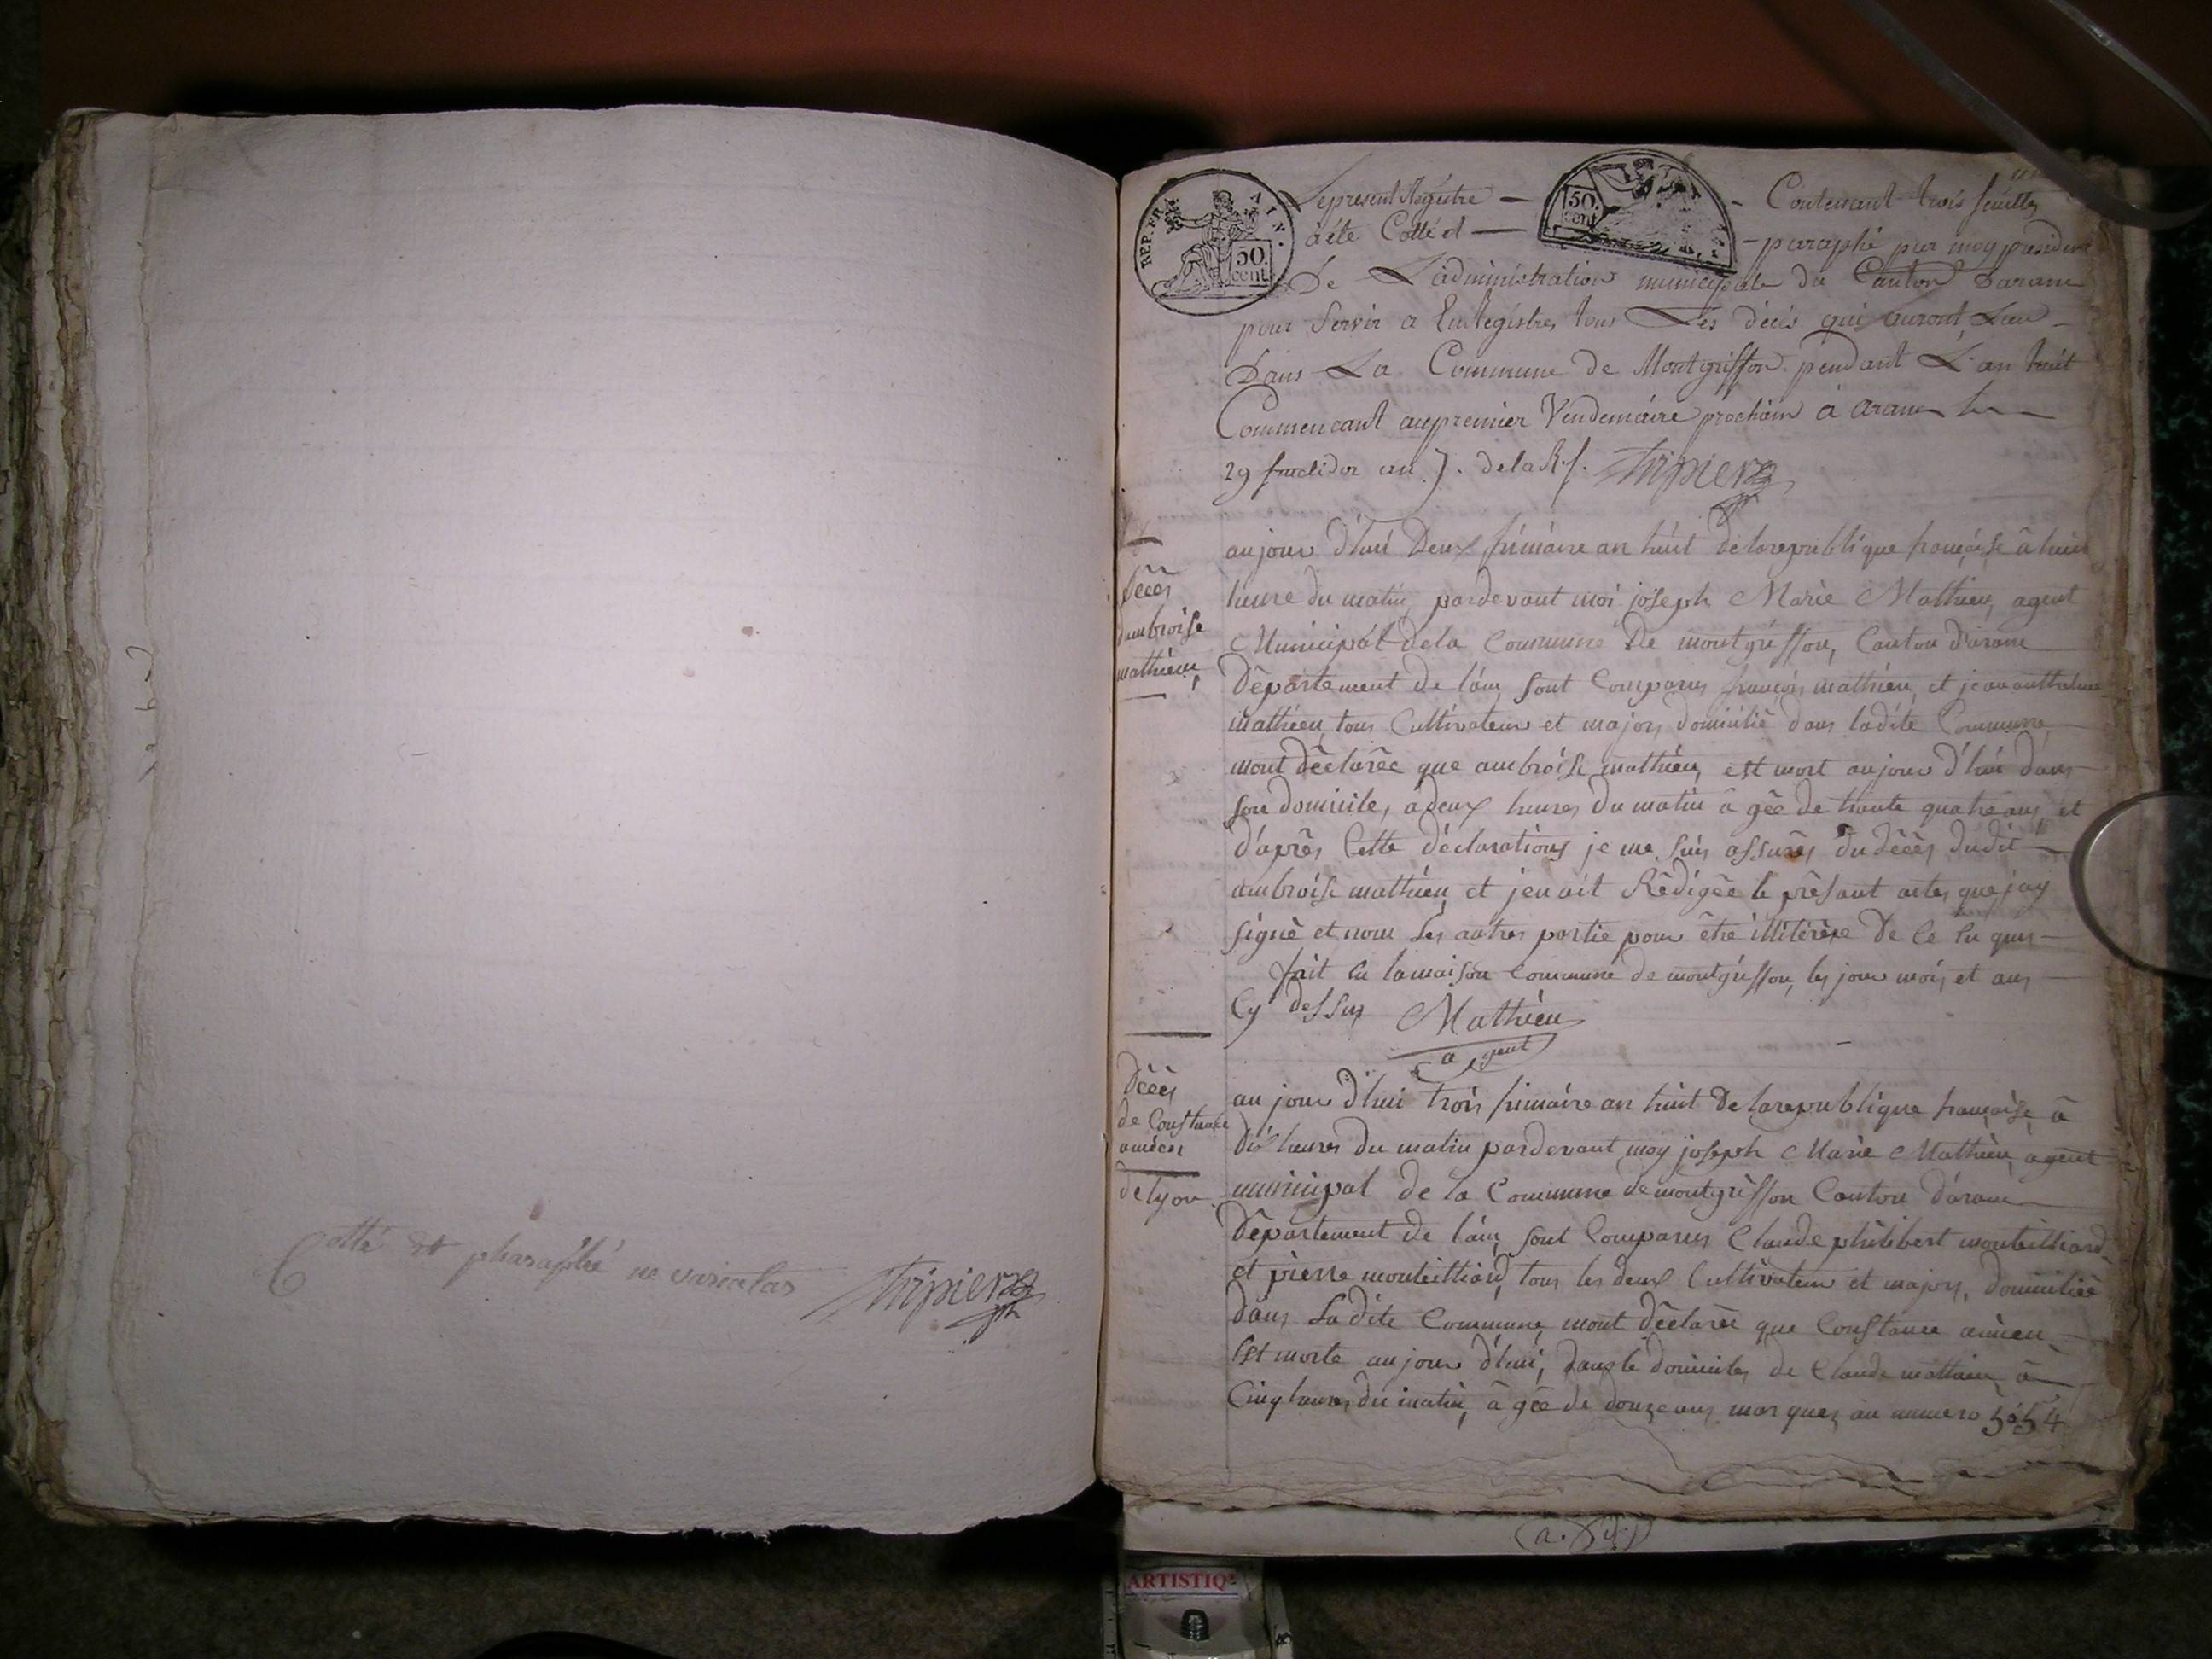 Cotté et pharaphé ne varietas Tripier
REP. FRA. AIN.
50. cent
50. cent
Le present Registre — Contenant trois feuilles
a éte Cotté et — paraphé par moy president
De L'administration municipale du Canton D'aranc
pour Servir a Enregistrer tous Les décés qui auront Lieu
Dans La Commune de Montgriffon pendant L'an huit
Commencant au premier Vendemiaire prochain a aranc le
29 fructidor an 7. de la R. f. Tripier
Décés
d'ambroise
mathieu,
aujour d'hui Deux frimaire an huit de la republique française à huit
heure du matin, pardevant moi joseph Marie Mathieu, agent
Municipal de la Commune De montgriffon, Canton d'aranc
Département de l'ain, sont Comparus françois mathieu, et jean anthelme
mathieu, tous Cultivateur et majors domicilié dans ladite Commune,
mont déclarée que ambroise mathieu, est mort aujour d'hui dans
son domicile, a deux heures du matin â gée de trante quatre ans, et
d'aprés Cette déclarations je me suis assurés du décés dudit
ambroise mathieu, et jen ait Rédigée le présant actes que jay
signé et nom les autres partie pour être illitérére De Ce en quis
fait en la maison Commune de montgriffon, les jour mois et ans
Cy dessus Mathieu
agent
Décés
de Constance
de lyon
aujour d'hui trois frimaire an huit De la republique française, à
dis heures du matin pardevant moy joseph Marie Mathieu, agent
municipal de la Commune de montgriffon Canton d'aranc
Département de l'ain, sont Comparus Claude philibert montilliard
et pierre montilliard, tous les deux Cultivateur et majors, domiciliée
dans La dite Commune, mont déclarée que Constance
Est morte aujour d'hui, dans le domiciles de Claude mathieu, à
Cinq heures du matin, â gée de douze ans marquez au numero 5054
ARTISTIQ